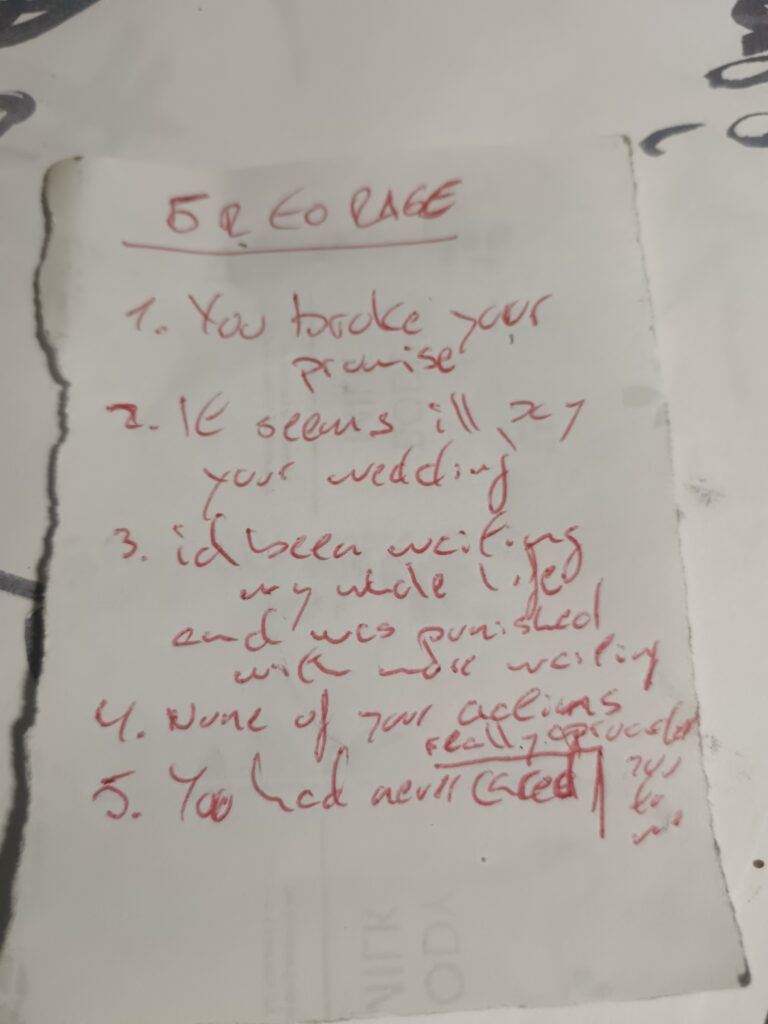 5 R to RAGE
1. You broke your
promise
2. It seems ill
your wedding
3. id been waiting
my whole life
and was punished
with more waiting
4. None of your actions
really
5. You had never cared
to
me
MILK